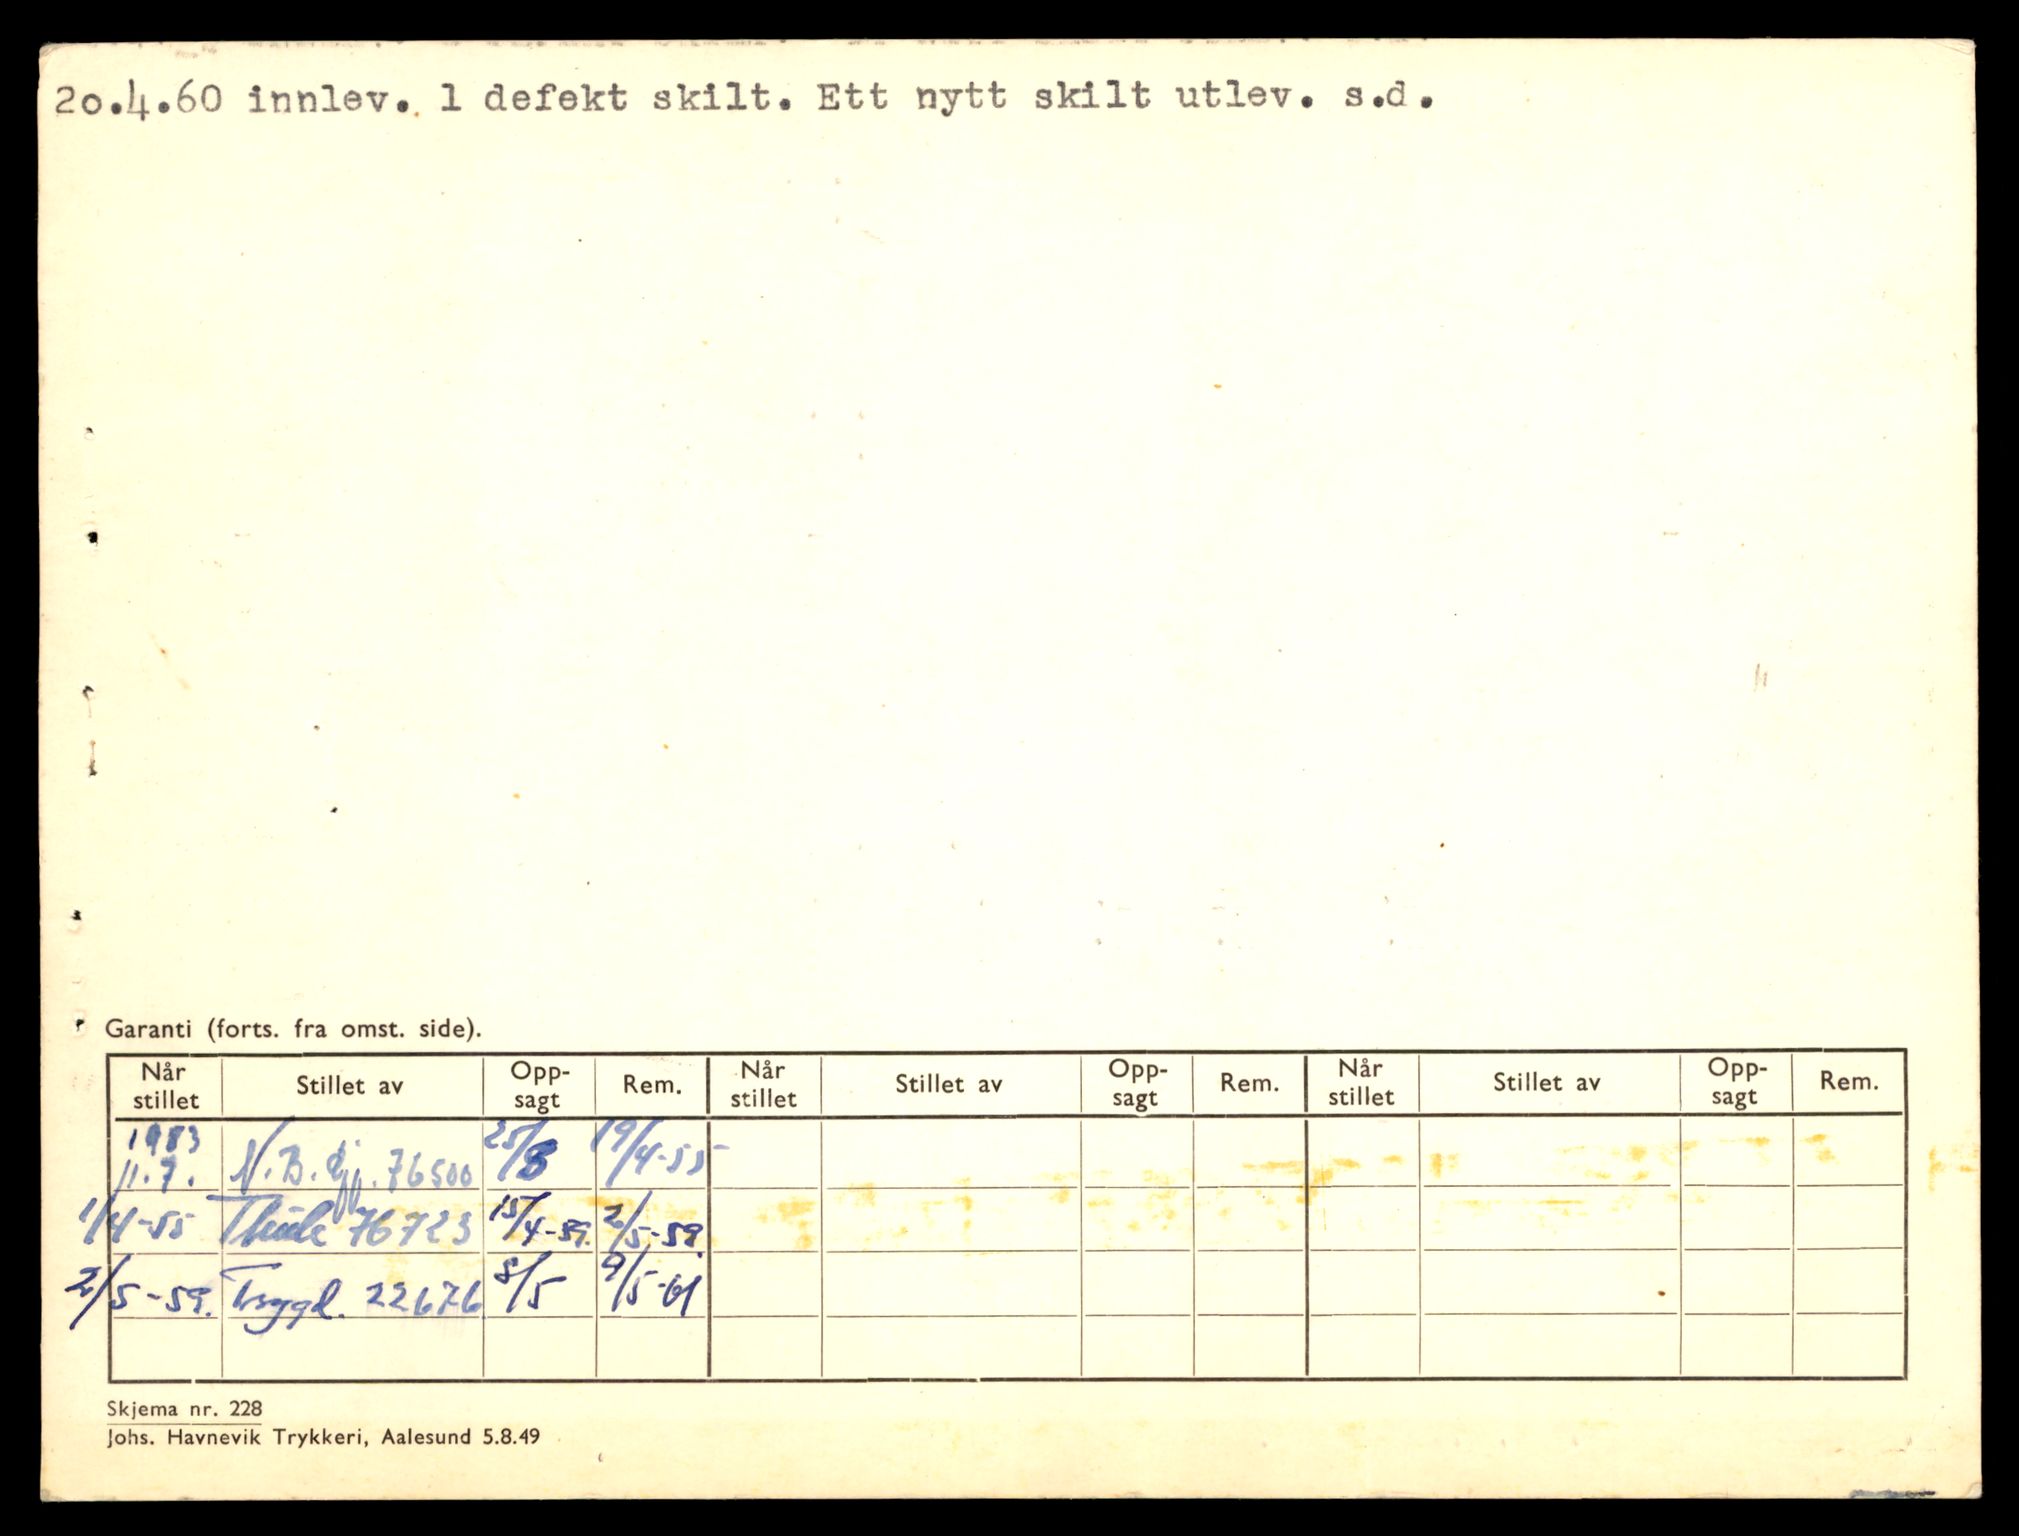 20.4.60 innlev. 1 defekt skilt. Ett nytt skilt utlev. s.d.
Garanti (forts. fra omst. side).
Når stillet Stillet av Opp-sagt Rem. Når stillet Stillet av Opp-sagt Rem. Når stillet Stillet av Opp-sagt Rem.
11.7. N.B. 76500 25/8 19/4-55
1/4-55 Thule 76723 15/4-59. 2/5-59.
2/5-59. Trygd. 22676 8/5 9/5-61
Skjema nr. 228
Johs. Havnevik Trykkeri, Aalesund 5.8.49